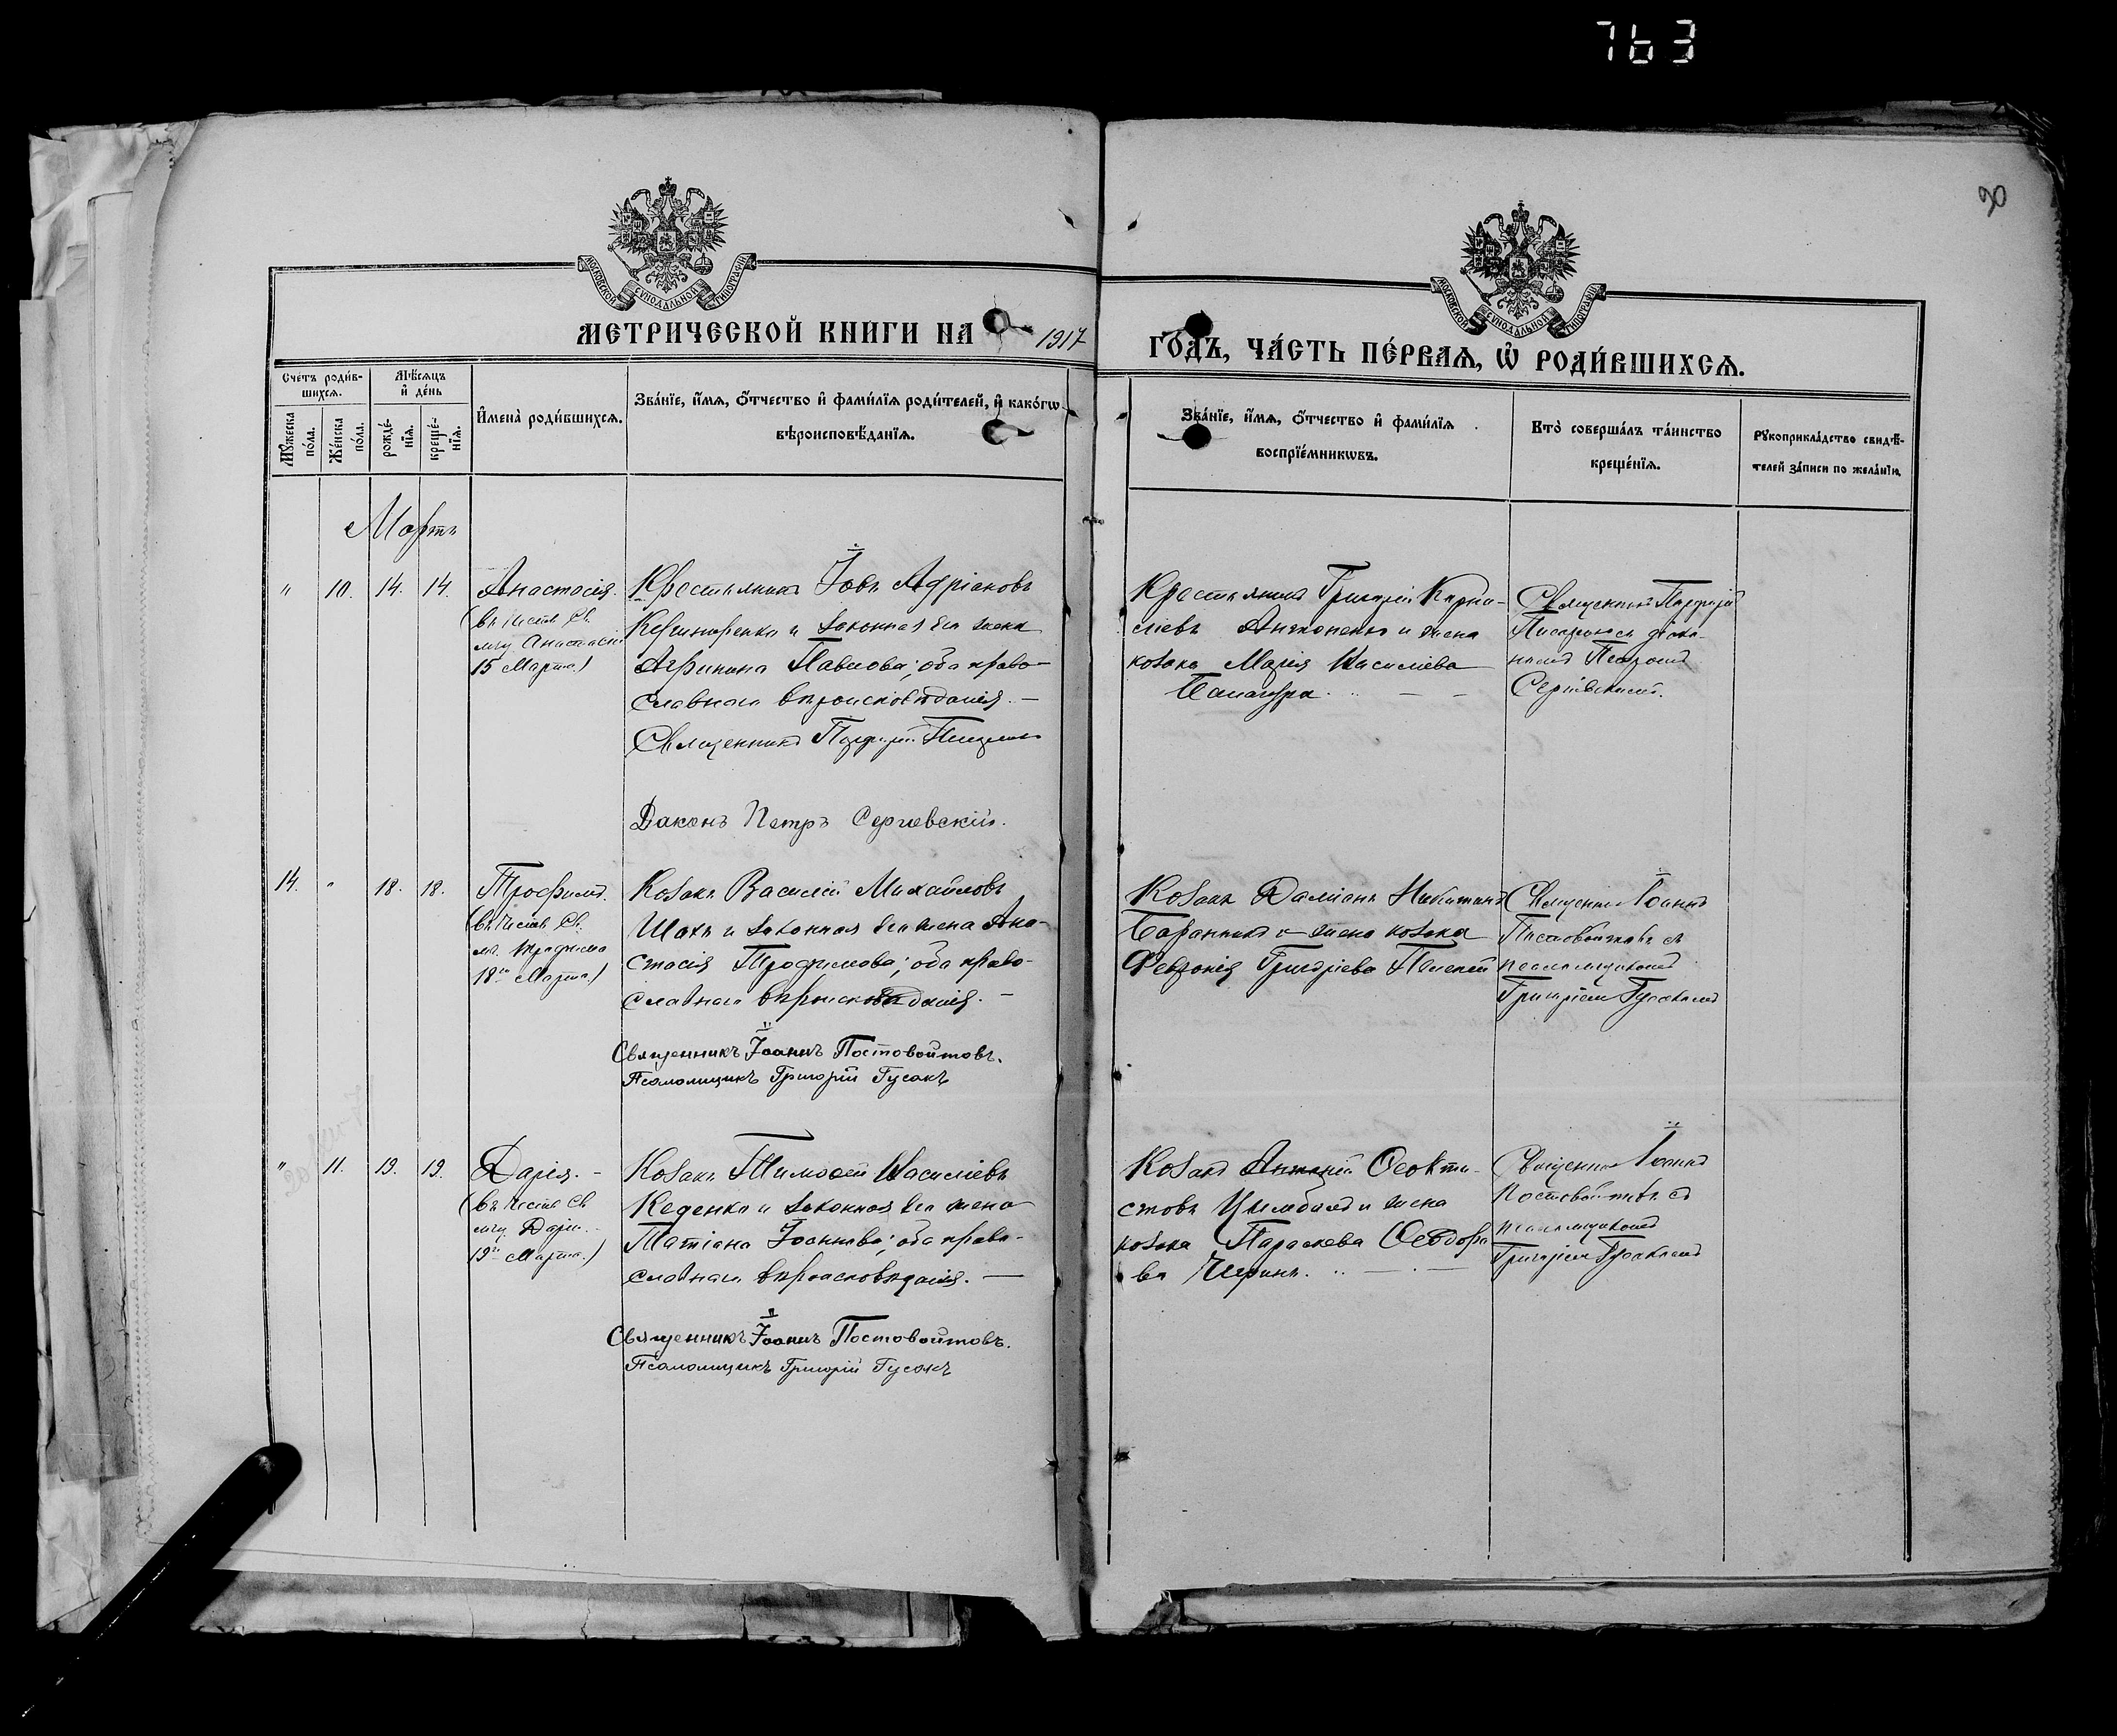 763
20
МОСКОВСКОЙ СѴНОДАЛЬНОЙ ТИПОГРАФІИ
МОСКОВСКОЙ СѴНОДАЛЬНОЙ ТИПОГРАФІИ
МЕТРИЧЕСКОЙ КНИГИ НА 1917
ГО́ДЪ, ЧА́СТЬ ПЕ́РВАѦ, Ѽ РОДИ́ВШИХСѦ.
Сче́тъ роди́в-
шихсѧ.
Мꙋ́жеска по́ла.
Же́нска по́ла.
Мѣ́сѧцъ
и҆ де́нь
рожде́-
нїѧ.
креще́-
нїѧ.
И҆мена̀ роди́вшихсѧ.
Зва́нїе, и҆́мѧ, ѻ҆́тчество и҆ фами́лїѧ роди́телей, и҆ како́гѡ
вѣроисповѣ́данїѧ.
Зва́нїе, и҆́мѧ, ѻ҆́тчество и҆ фами́лїѧ
воспрїе́мникѡвъ.
Кто̀ соверша́лъ та́инство
креще́нїѧ.
Рꙋкоприкла́дство свидѣ́-
телей за́писи по жела́нїю.
Мартъ
" 10. 14. 14.
Анастасія.
(въ честь Св.
мцы Анастасіи
15 Марта.)
Крестьянинъ Іовъ Адріановъ
и законная его жена
Павлова; оба право-
славнаго вѣроисповѣданія. —
Священникъ
Діаконъ Петръ Сергіевскій.
Крестьянинъ Григорій Корни-
ліевъ и жена
козака Марія Василіева
Священникъ
діако-
номъ Петромъ
Сергіевскимъ.
14. " 18. 18.
Трофимъ.
(въ честь Св.
мч. Трофима
18го Марта.)
Козакъ Василій Михайловъ
Шахъ и законная его жена Ана-
стасія Трофимова; оба право-
славнаго вѣроисповѣданія. —
Священникъ Іоаннъ Постовойтовъ.
Псаломщикъ Григорій Гусакъ
Козакъ Даміанъ Никитинъ
Баранникъ и жена козака
Февронія Григоріева
Священникъ Іоаннъ
Постовойтовъ съ
псаломщикомъ
Григоріемъ Гусакомъ
" 11. 19. 19.
Дарія. —
(въ честь Св.
мцы Даріи
19го Марта.)
Козакъ Тимоѳей Василіевъ
Кеденко и законная его жена
Татіана Іоаннова; оба право-
славнаго вѣроисповѣданія. —
Священникъ Іоаннъ Постовойтовъ.
Псаломщикъ Григорій Гусакъ
Козакъ Антоній Ѳеокти-
стовъ Цимбалъ и жена
козака Параскева Ѳеодоро
ва
Священникъ Іоаннъ
Постовойтовъ съ
псаломщикомъ
Григоріемъ Гусакомъ